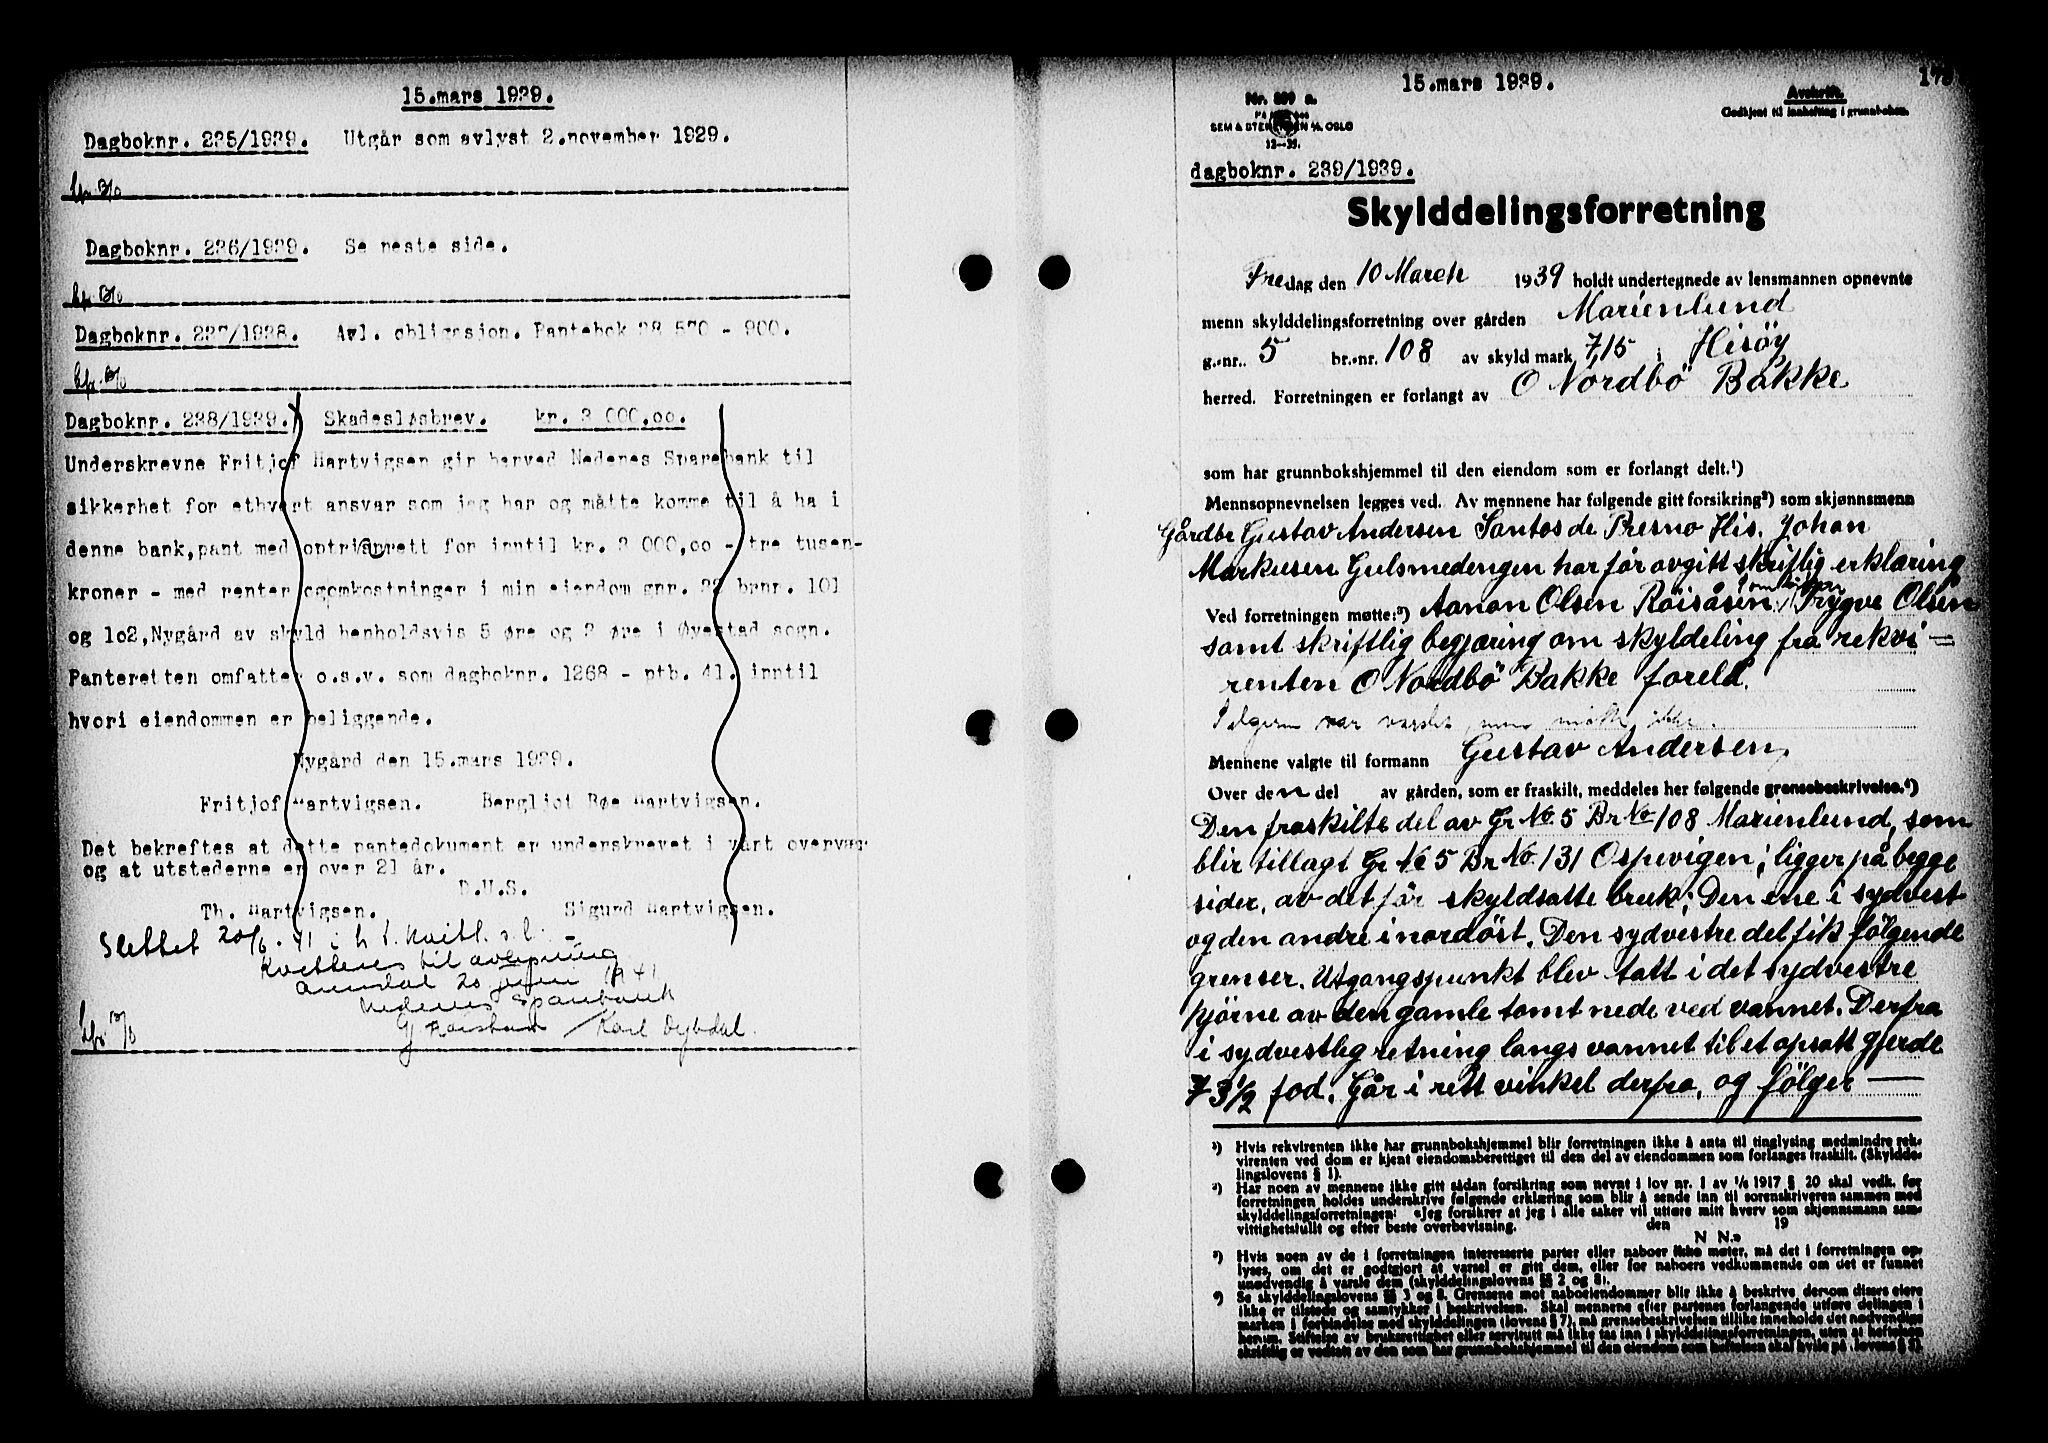 15.mars 1939.
Dagboknr. 235/1939. Utgår som avlyst 2.november 1929.
Dagboknr. 236/1939. Se neste side.
Dagboknr. 237/1938. Avl. obligasjon. Pantebok 38 570 - 900.
Dagboknr. 238/1939. Skadesløsbrev. kr. 3 000,oo.
Underskrevne Fritjof Hartvigsen gir herved Nedenes Sparebank til
sikkerhet for ethvert ansvar som jeg har og måtte komme til å ha i
denne bank,pant med rett for inntil kr. 3 000,oo - tre tusen-
kroner - med renter ogomkostninger i min eiendom gnr. 22 brnr. 101
og 1o2,Nygård av skyld henholdsvis 5 øre og 3 øre i Øyestad sogn.
Panteretten omfatter o.s.v. som dagboknr. 1268 - ptb. 41. inntil
hvori eiendommen er beliggende.
Nygård den 15.mars 1939.
Fritjof Hartvigsen. Bergljot Bøe Hartvigsen.
Det bekreftes at dette pantedokument er underskrevet i vårt overvær
og at utstederne er over 21 år.
D.U.S.
Th. Hartvigsen. Sigurd Hartvigsen.
Slettet 20/6. 41 i h t. kvitt.
Kvitteres til avlysning
Arendal 20 juni 1941
Nedenes Sparebank
Karl Dybdal.
15.mars 1939.
Nr. 899 a.
SEM & STENERSEN A/S, OSLO
12—35.
Avskrift.
Godkjent til innhefting i grunnboken.
dagboknr. 239/1939.
Skylddelingsforretning
Fredag den 10 March 1939 holdt undertegnede av lensmannen opnevnte
menn skylddelingsforretning over gården Marienlund
g.-nr. 5 br.-nr. 108 av skyld mark 7,15 i Hisøy
herred. Forretningen er forlangt av O Nordbö Bakke
som har grunnbokshjemmel til den eiendom som er forlangt delt.¹)
Mennsopnevnelsen legges ved. Av mennene har følgende gitt forsikring²) som skjønnsmenn
Gårdbr Gustav Andersen Santos de Presno His. Johan
Markusen Gulsmedengen har før avgitt skriftlig erklæring
Ved forretningen møtte:³) Aanon Olsen Röisåsen, Trygve Olsen
samt skriftlig begjæring om skyldeling fra rekvi-
renten O Nordbö Bakke foreld.
Selgeren var varslet men møtte ikke.
Mennene valgte til formann Gustav Andersen,
Over den del av gården, som er fraskilt, meddeles her følgende grensebeskrivelse.⁴)
Den fraskilte del av Gr No 5 Br No 108 Marienlund, som
blir tillagt Gr No 5 Br No. 131 Ospevigen; ligger på begge
sider, av det før skyldsatte bruk; Den ene i sydvest
og den andre i nordöst. Den sydvestre del fik følgende
grenser. Utgangspunkt blev tatt i det sydvestre
hjörne av den gamle tomt nede ved vannet. Derfra
i sydvestlig retning langs vannet til et opsatt gjerde
73½ fod. Går i rett vinkel derfra, og fölger —
¹) Hvis rekvirenten ikke har grunnbokshjemmel blir forretningen ikke å anta til tinglysing medmindre rek-
virenten ved dom er kjent eiendomsberettiget til den del av eiendommen som forlanges fraskilt. (Skyldde-
lingslovens § 1).
²) Har noen av mennene ikke gitt sådan forsikring som nevnt i lov nr. 1 av 1/6 1917 § 20 skal vedk. før
forretningen holdes underskrive følgende erklæring som blir å sende inn til sorenskriveren sammen med
skylddelingsforretningen: «Jeg forsikrer at jeg i alle saker vil utføre mitt hverv som skjønnsmann sam-
vittighetsfullt og efter beste overbevisning. den 19
N N.»
³) Hvis noen av de i forretningen interesserte parter eller naboer ikke møter, må det i forretningen op-
lyses, om det er godtgjort at varsel er gitt dem, eller for naboers vedkommende om det er funnet
unødvendig å varsle dem (skylddelingslovens §§ 2 og 8).
⁴) Se skylddelingslovens §§ 3 og 8. Grensene mot naboeiendommer blir ikke å beskrive dersom disses eiere
ikke er tilstede og samtykker i beskrivelsen. Skal mennene efter partenes forlangende utføre delingen i
marken i forbindelse med skylddelingen (lovens § 7), må grensebeskrivelsen tillike inneholde det nødvendige
herom. Stiftelse av bruksrettighet eller servitutt må ikke tas inn i skylddelingsforretningen, uten at heftelsen
skriftlig er vedtatt av den som har grunnbokshjemmel til den eiendom som heftelsen skal hvile på (lovens § 9)